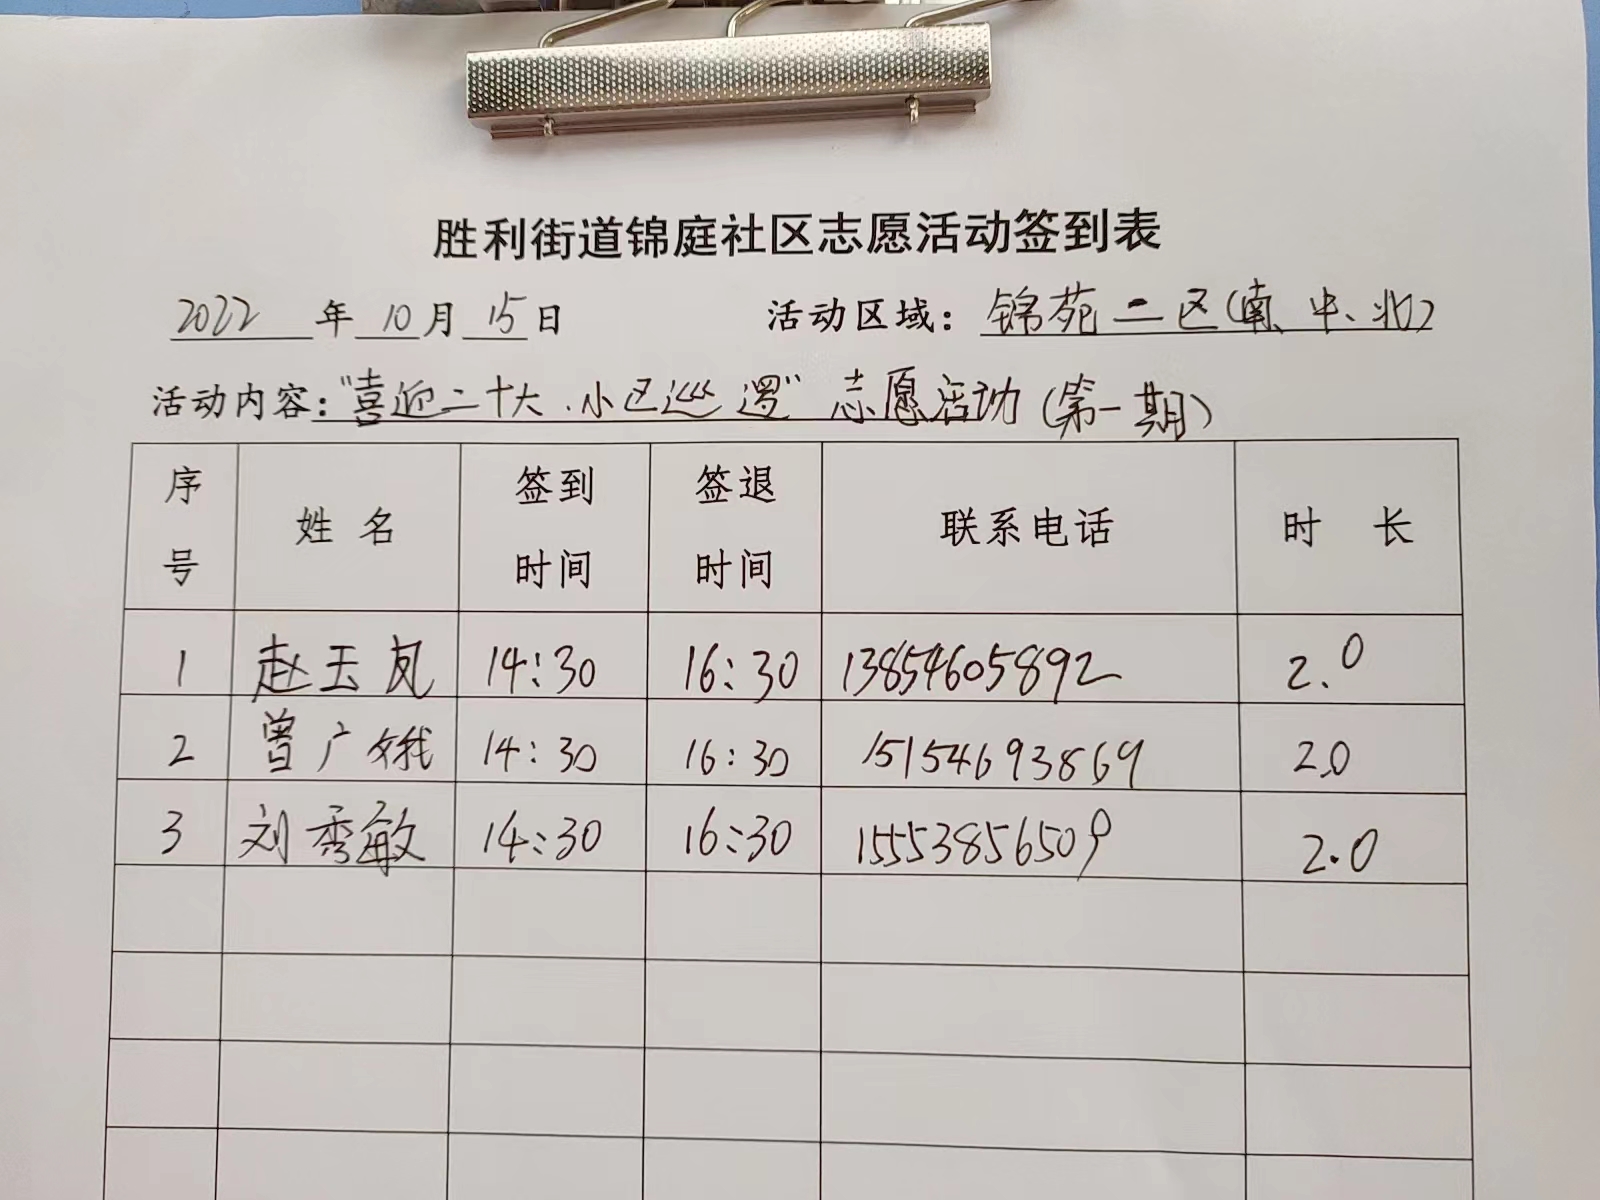 胜利街道锦庭社区志愿活动签到表
2022 年 10 月 15 日 活动区域：锦苑二区（南、中、北）
活动内容："喜迎二十大.小区巡逻"志愿活动（第一期）
序号 姓名 签到时间 签退时间 联系电话 时长
1 赵玉凤 14:30 16:30 13854605892 2.0
2 曾广娥 14:30 16:30 15154693869 2.0
3 刘秀敏 14:30 16:30 15553856509 2.0